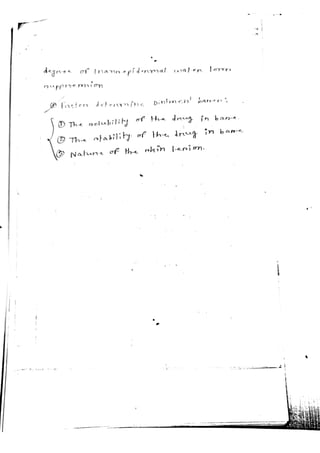 degree of transepidermal water loss
suppression
Factors determine Ointment bases:
① The solubility of the drug in base.
② The stability of the drug in base
③ Nature of the skin lesion.